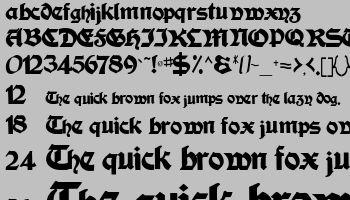 abcdefghijklmnopqrstuvwxyz
ABCDEFGHIJKLMNOPQRST
0123456789
12 The quick brown fox jumps over the lazy dog.
18 The quick brown fox jumps ov
24 The quick brown fox ju
The quick brow